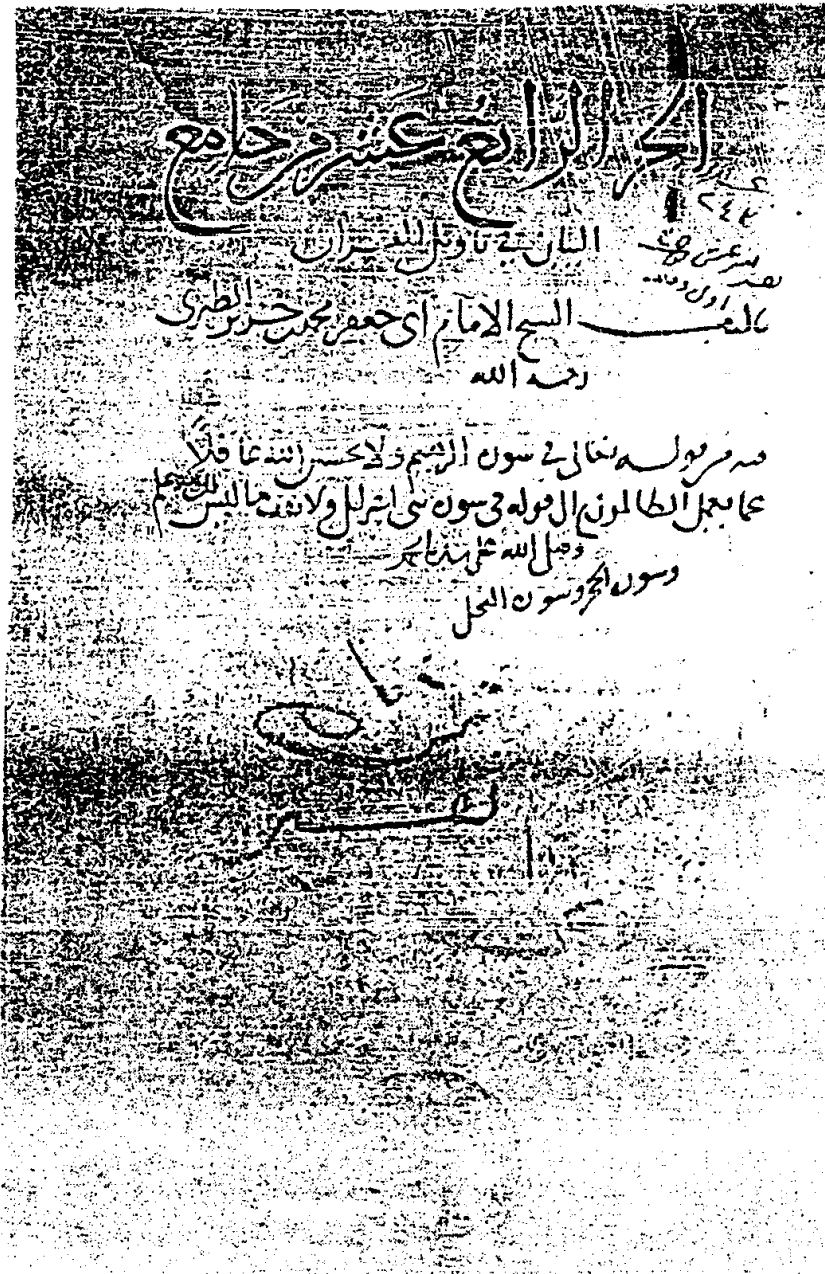 الجزء الرابع عشر من جامع
البيان في تاويل القران
تاليف الشيخ الامام ابي جعفر محمد بن جرير الطبري
رحمه الله
فيه من قوله تعالى في سورة ابرهيم ولا تحسبن الله غافلا
عما يعمل الظالمون الى قوله في سورة بني اسرايل ولا تقف ما ليس لك به علم
وصلى الله على
وسورة الحجر وسورة النحل
٢٤٢
تفسير